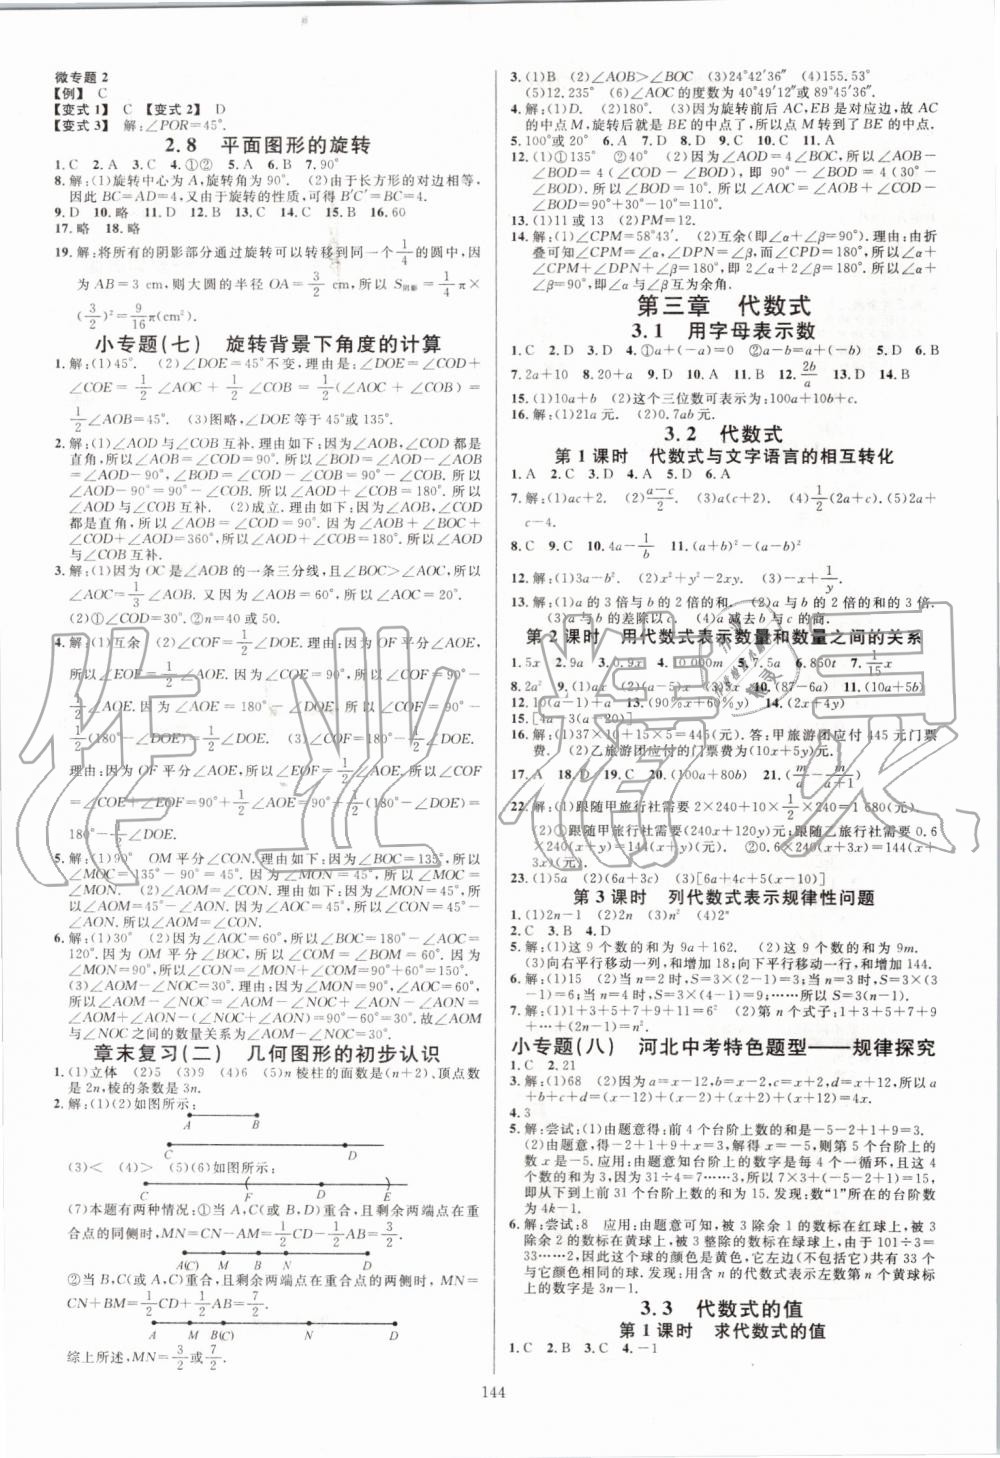 微专题2
【例】 C
【变式1】 C 【变式2】 D
【变式3】 解:∠POR=45°.
2.8 平面图形的旋转
1.C 2.A 3.C 4.①② 5.A 6.B 7.90°
8.解:(1)旋转中心为A,旋转角为90°. (2)由于长方形的对边相等,
因此BC=AD=4,又由于旋转的性质,可得B′C′=BC=4.
9.D 10.略 11.D 12.B 13.C 14.C 15.B 16.60
17.略 18.略
19.解:将所有的阴影部分通过旋转可以转移到同一个1/4的圆中,因
为AB=3 cm,则大圆的半径OA=3/2 cm,所以S阴影=1/4π×
(3/2)²=9/16π(cm²).
小专题(七) 旋转背景下角度的计算
1.解:(1)45°. (2)∠DOE=45°不变;理由是:∠DOE=∠COD+
∠COE=1/2∠AOC+1/2∠COB=1/2(∠AOC+∠COB)=
1/2∠AOB=45°. (3)图略,∠DOE等于45°或135°.
2.解:(1)∠AOD与∠COB互补.理由如下:因为∠AOB,∠COD都是
直角,所以∠AOB=∠COD=90°.所以∠BOD=∠AOD-∠AOB=
∠AOD-90°,∠BOD=∠COD-∠COB=90°-∠COB.所以
∠AOD-90°=90°-∠COB.所以∠AOD+∠COB=180°.所以
∠AOD与∠COB互补. (2)成立.理由如下:因为∠AOB,∠COD
都是直角,所以∠AOB=∠COD=90°.因为∠AOB+∠BOC+
∠COD+∠AOD=360°,所以∠AOD+∠COB=180°.所以∠AOD
与∠COB互补.
3.解:(1)因为OC是∠AOB的一条三分线,且∠BOC>∠AOC,所以
∠AOC=1/3∠AOB.又因为∠AOB=60°,所以∠AOC=20°.
(2)①∠COD=30°.②n=40或50.
4.解:(1)互余 (2)∠COF=1/2∠DOE.理由:因为OF平分∠AOE,所
以∠EOF=1/2∠AOE.因为∠COE=90°,所以∠COF=90°-
1/2∠AOE.因为∠AOE=180°-∠DOE,所以∠COF=90°-
1/2(180°-∠DOE)=1/2∠DOE.
理由:因为OF平分∠AOE,所以∠EOF=1/2∠AOE.所以
∠COF=∠COE+∠EOF=90°+1/2∠AOE=90°+1/2(180°-∠DOE)=
180°-1/2∠DOE.
5.解:(1)90° OM平分∠CON.理由如下:因为∠BOC=135°,所以
∠MOC=135°-90°=45°.因为∠MON=45°,所以∠MOC=∠MON.
所以OM平分∠CON. (2)∠AOM=∠CON.理由如下:因为∠MON=
45°,所以∠AOM=45°-∠AON.因为∠AOC=45°,所以∠CON=
45°-∠AON.所以∠AOM=∠CON.
6.解:(1)30° (2)因为∠AOC=60°,所以∠BOC=180°-∠AOC=
120°.因为OM平分∠BOC,所以∠COM=∠BOM=60°.因为
∠MON=90°,所以∠CON=∠MON+∠COM=90°+60°=150°.
(3)∠AOM-∠NOC=30°.理由如下:因为∠MON=90°,∠AOC=60°,
所以∠AOM-∠NOC=(∠MON-∠AON)-(∠AOC-∠AON)=
∠AOM+∠AON-(∠NOC+∠AON)=90°-60°=30°.故∠AOM
与∠NOC之间的数量关系为∠AOM-∠NOC=30°.
章末复习(二) 几何图形的初步认识
1.(1)立体 (2)5 (3)9 (4)6 (5)n棱柱的面数是(n+2),顶点数
是2n,棱的条数是3n.
2.解:(1)(2)如图所示:
A B
C D
(3)< (4)> (5)(6)如图所示:
C F D E
(7)本题有两种情况:①当A,C(或B,D)重合,且剩余两端点在重
合点的同侧时,MN=CN-AM=1/2CD-1/2AB=3/2;
A(C) M B N D
②当B,C(或A,C)重合,且剩余两端点在重合点的两侧时,MN=
CN+BM=1/2CD+1/2AB=7/2.
A M B(C) N D
综上所述,MN=3/2或7/2.
3.(1)B (2)∠AOB>∠BOC (3)24°42′36″ (4)155.53°
(5)12.235° (6)∠AOC的度数为40°49′12″或89°45′36″.
4.解:(1)D. (2)180°. (3)因为旋转前后AC,EB是对应边,故AC
的中点M,旋转后就是EB的中点,所以点M转到了BE的中点.
5.100°或20° 6.A 7.D 8.D 9.C 10.C 11.A
12.(1)①135° ②40° (2)因为∠AOD=4∠BOC,所以∠AOB-
∠BOD=4(∠COD-∠BOD),即90°-∠BOD=4(30°-
∠BOD).所以∠BOD=10°.所以∠AOC=∠AOB+∠COD-
∠BOD=90°+30°-10°=110°.
13.(1)11或13 (2)PM=12.
14.解:(1)∠CPM=58°43′. (2)互余(即∠α+∠β=90°).理由:由折
叠可知∠CPM=∠α,∠DPN=∠β,而∠CPD=180°,所以∠α+
∠CPM+∠DPN+∠β=180°,即2∠α+2∠β=180°.所以∠α+
∠β=90°,即∠α与∠β互为余角.
第三章 代数式
3.1 用字母表示数
1.C 2.D 3.D 4.①a+(-a)=0 ②a-b=a+(-b) 5.D 6.B
7.2a+10 8.20+a 9.D 10.A 11.B 12.2b/a 13.D 14.B
15.(1)10a+b (2)这个三位数可表示为:100a+10b+c.
16.解:(1)21a元. (2)0.7ab元.
3.2 代数式
第1课时 代数式与文字语言的相互转化
1.A 2.C 3.D 4.A 5.D 6.A
7.解:(1)ac+2. (2)(a-c)/2. (3)a(c+2). (4)1/2(2a+c). (5)2a+
c-4.
8.C 9.C 10.4a-1/b 11.(a+b)²-(a-b)²
12.解:(1)3a-b². (2)x²+y²-2xy. (3)x+1/y.
13.解:(1)a的3倍与b的2倍的和. (2)a的2倍的和的3倍.
(3)a与b的差除以c. (4)a减去b与c的商.
第2课时 用代数式表示数量和数量之间的关系
1.5x 2.9a 3.0.9x 4.10 000m 5.7.5a 6.850t 7.1/15x
8.2a² 9.(1)ax (2)(a-5) (3)3x 10.2(a+b) 11.(10a+5b)
12.10(a-1)+a 13.(90%x+60%x) 14.(2x+4y)
15.[4a-3(a-20)]
16.解:(1)37×10+15×5=445(元).答:甲旅游团应付445元门票
费. (2)乙旅游团应付的门票费为(10x+5y)元.
17.A 18.D 19.C 20.(100a+80b) 21.(m/a-m/(a+1))
22.解:(1)跟随甲旅行社需要2×240+10×1/2×240=1 680(元).
(2)①跟随甲旅行社需要(240+120y)元;跟随乙旅行社需要0.6
×240x=144x(元). ②0.6×240×(x+3)=144(x+
3)元.
23.(1)5a (2)(6a+3c) (3)[6a+4c+5(b-c)]
第3课时 列代数式表示规律性问题
1.(1)2n-1 (2)2n (3)n² (4)2ⁿ
2.C 3.B 4.D
5.解:(1)这9个数的和为9a+162. (2)这9个数的和为9m.
(3)向右平行移动一列,和增加18;向下平行移动一行,和增加144.
6.解:(1)15 (2)当n=2时,S=3×2-3=3;当n=3时,S=3×3
-3=6;当n=4时,S=3×4-3=9;……所以S=3(n-1).
7.解:(1)1+3+5+7+9+11=6² (2)第n个式子:1+3+5+7+9
+…+(2n-1)=n².
小专题(八) 河北中考特色题型——规律探究
1.C 2.21
3.解:(1)68 (2)因为a=x-12,b=x-2,c=x+2,d=x+12,所以
a+b+c+d=(x-12)+(x-2)+(x+2)+(x+12)=4x.
4.3
5.解:尝试:(1)由题意得:前4个台阶上数的和是-5-2+1+9=3.
(2)由题意,得-2+1+9+x=3,解得x=-5,则第5个台阶上的
数x是-5.应用:由题意知台阶上的数字是每4个一循环,且这4
个数的和为3.因为31÷4=7……3,所以7×3+(-5-2+1)=15,
即从下到上前31个台阶上数的和为15.发现:数“1”所在的台阶数
为4k-1.
6.解:尝试:8 应用:由题意可知,被3除余1的数标在红球上,被3
除余2的数标在黄球上,被3整除的数标在绿球上,由于101÷3=
33……2,因此这个球的颜色是黄色,它左边(不包括它)共有33个
与它颜色相同的球.发现:用含n的代数式表示左数第n个黄球标
上的数字是3n-1.
3.3 代数式的值
第1课时 求代数式的值
1.C 2.B 3.C 4.-1
144